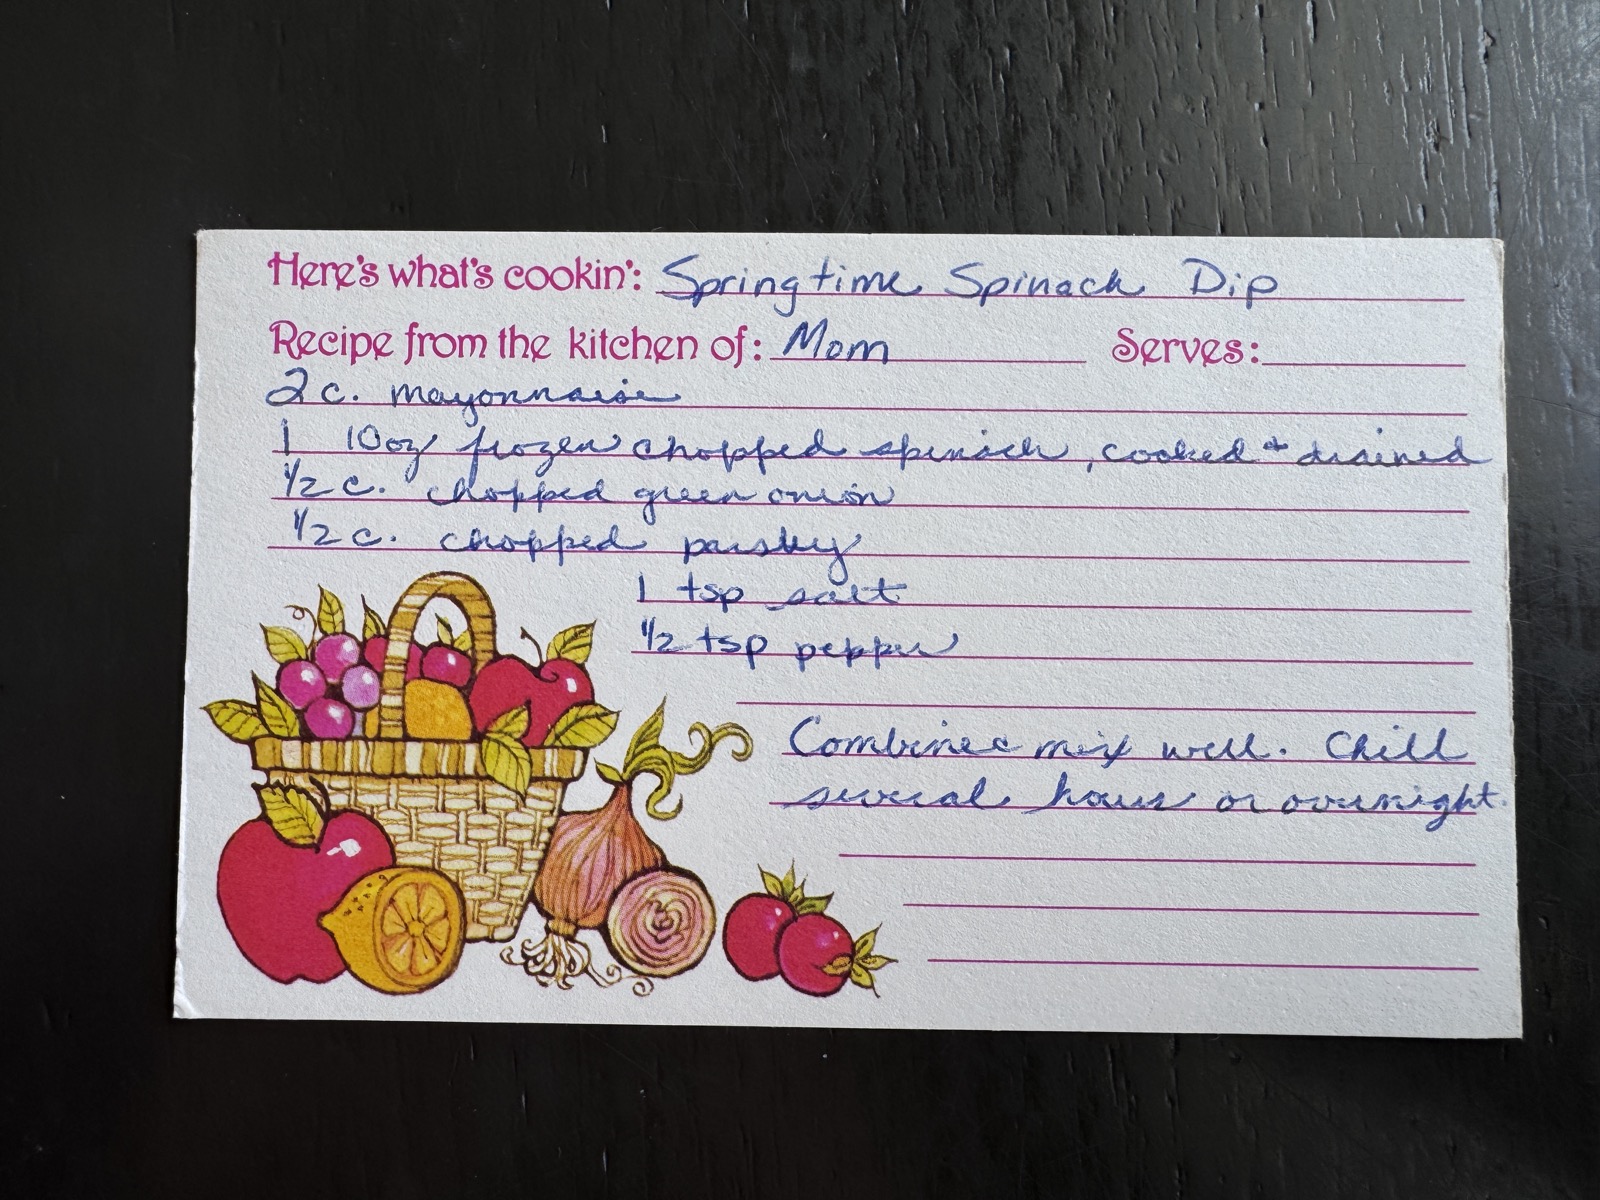 Here's what's cookin': Springtime Spinach Dip
Recipe from the kitchen of: Mom Serves:
2 c. mayonnaise
1 10oz frozen chopped spinach, cooked + drained
1/2 c. chopped green onion
1/2 c. chopped parsley
1 tsp salt
1/2 tsp pepper
Combine & mix well. Chill
several hours or overnight.